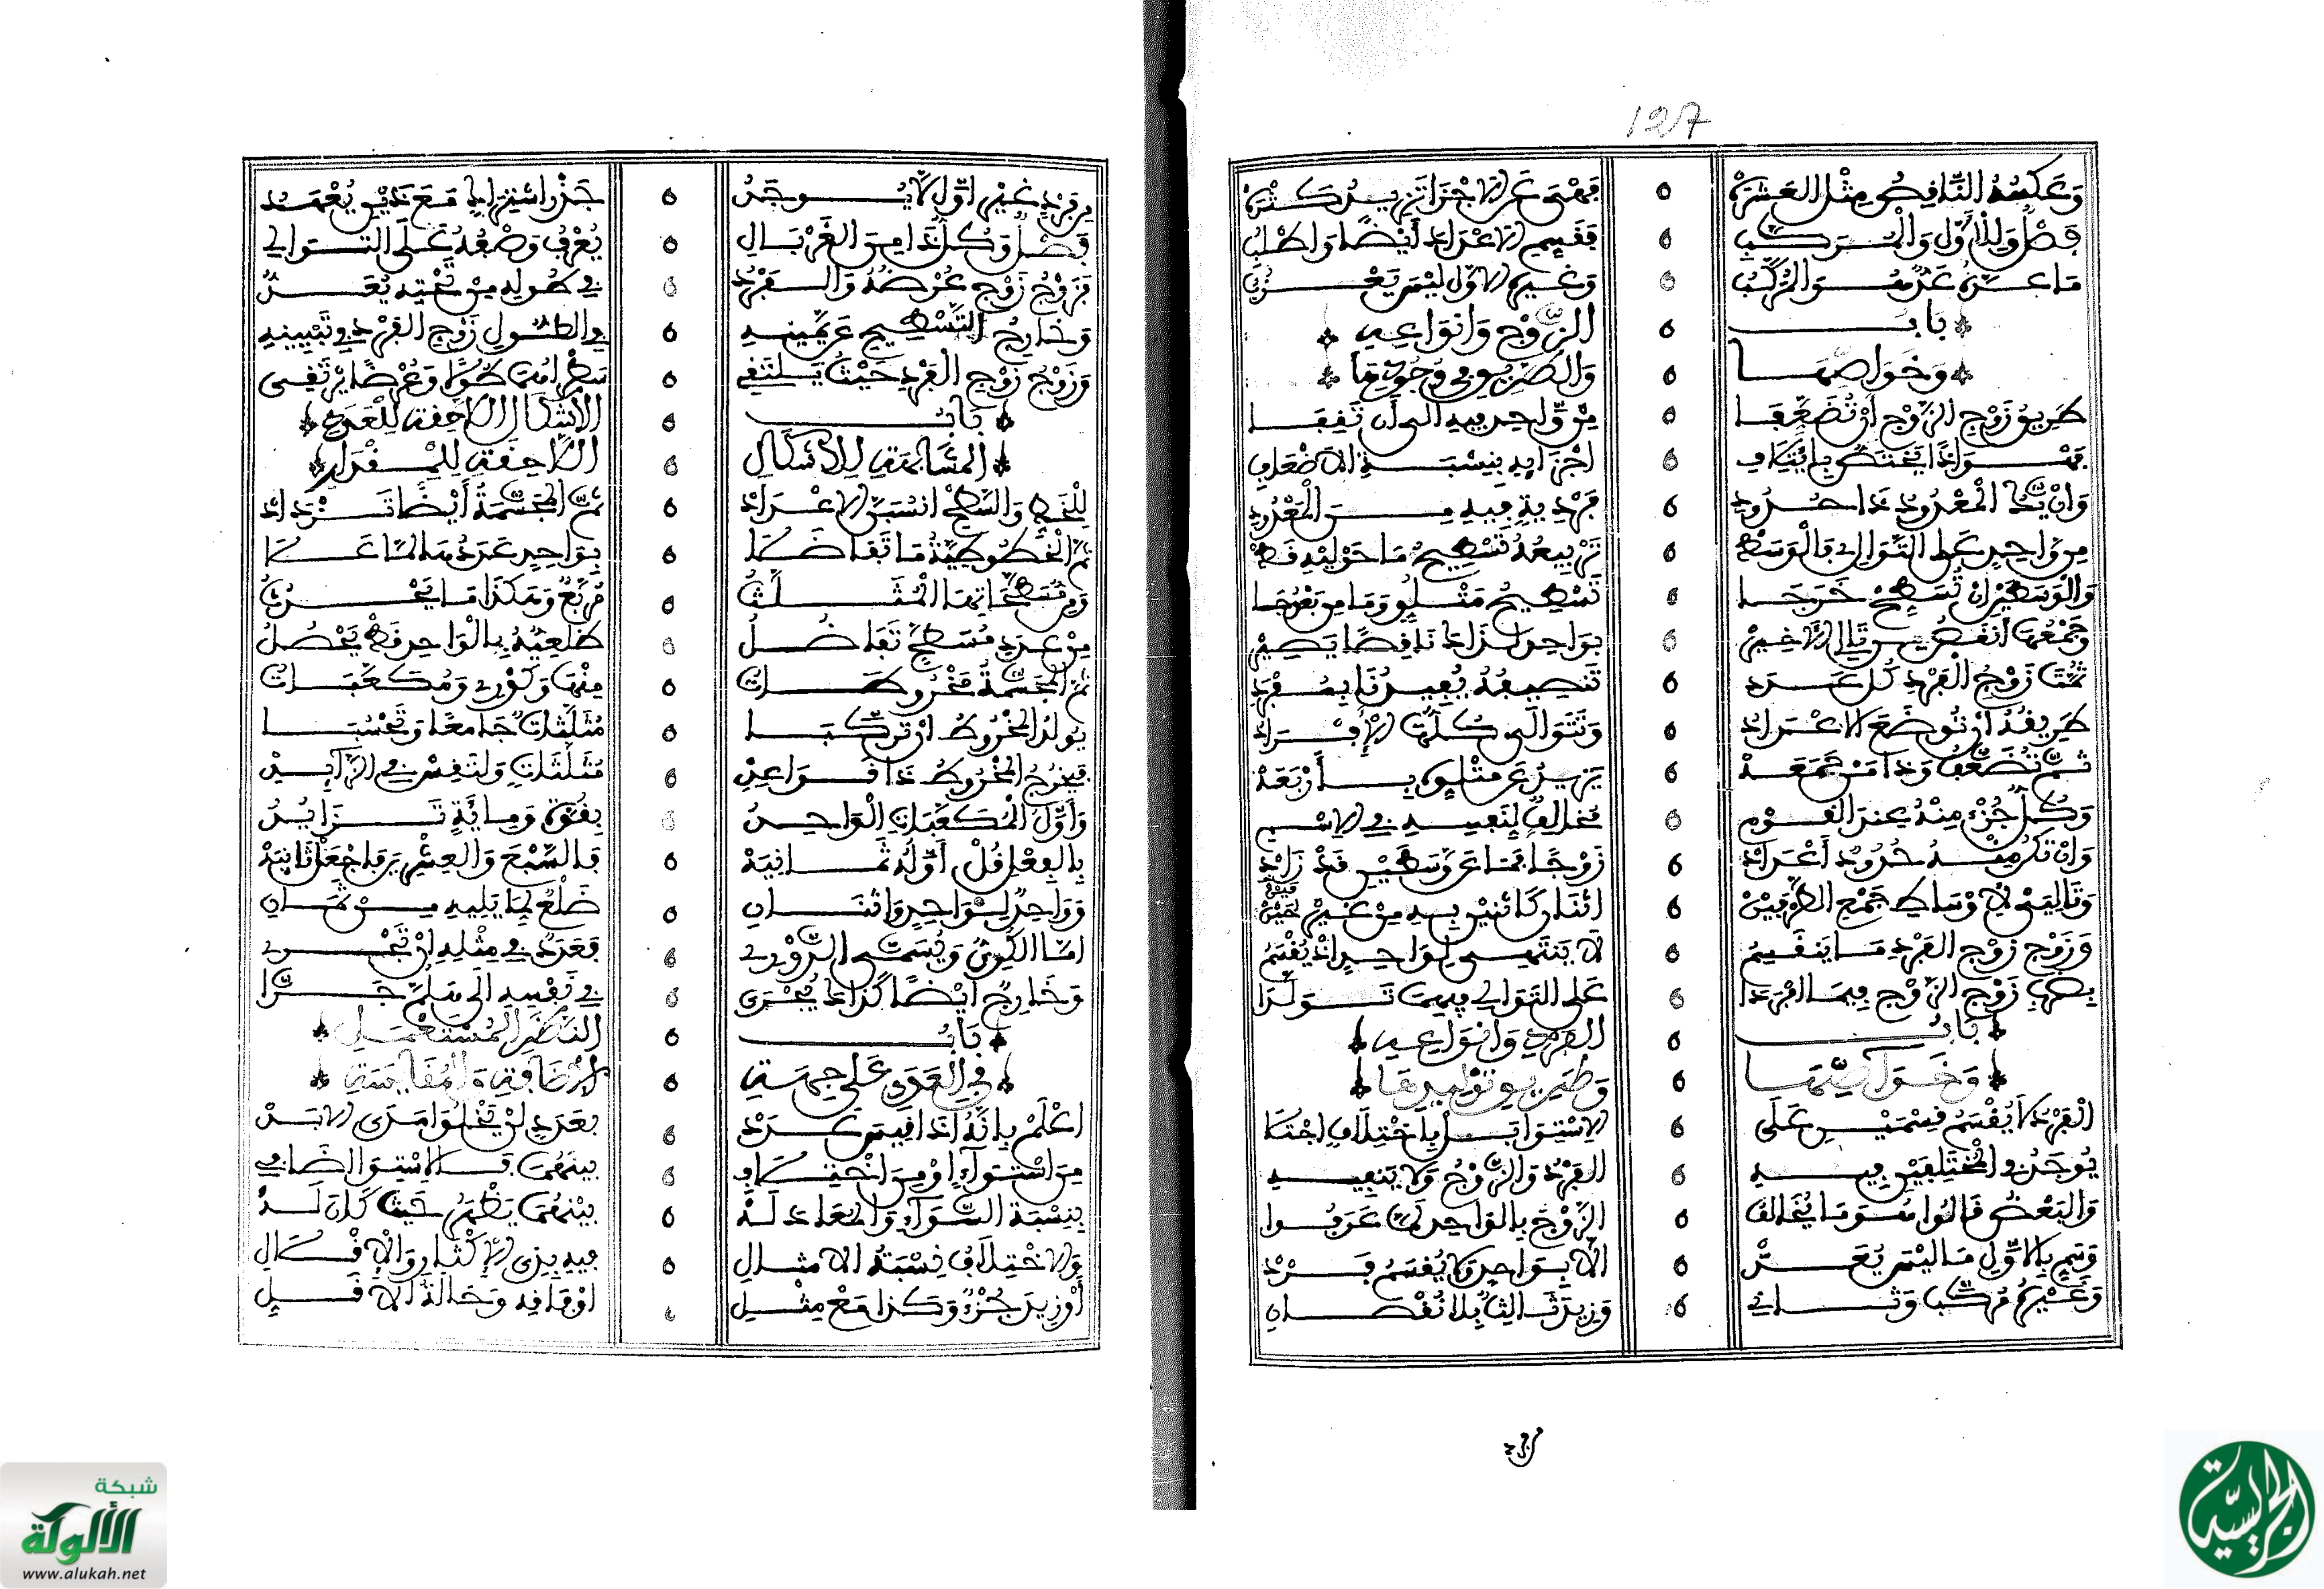 127
وَعَكسُهُ النَّافِصُ مِثْلُ العَشَرَهْ فَهْيَ عَنِ الاجْزَا تَزِيدُ كَثْرَهْ
فَصْلٌ وَلِلأَوَّلِ وَالمُرَكَّبِ تَنْقَسِمُ الاعْدَادُ أَيْضًا وَاطْلُبِ
مَا عَدَّهُ عَدٌّ هُوَ المُرَكَّبُ وَغَيْرُهُ الاوَّلُ لَيْسَ
بَابُ الزَّوْجِ وَأَنْوَاعِهِ
وَخَوَاصِّهَا وَالطَّرِيقِ فِي وُجُودِهَا
طَرِيقُ زَوْجِ الزَّوْجِ أَنْ تُضَعِّفَا مِنْ وَاحِدٍ فِيهِ إِلَى أَنْ تَقِفَا
أَجْزَائِهِ بِنِسْبَةِ الأَضْعَافِ
وَإِنْ يَكُ المَعْدُودُ ذَا حُدُودِ فَرْدِيَةٍ فِيهِ مِنَ المَعْدُودِ
مِنْ وَاحِدٍ عَلَى التَّوَالِي فَالوَسَطْ تَرْبِيعُهُ تَسْطِيحُ مَا حَوْلَيْهِ قَطْ
وَالوَسَطَيْنِ إِنْ تُسَطِّحْ خَرَجَا تَسْطِيحُ مَا مِنْ بَعْدِهَا
وَجَمْعُهَا أَنْقَصُ مِنْ تَالِي الاخِيرْ بِوَاحِدٍ لِذَاكَ نَاقِصًا يَصِيرْ
ثُمَّتَ زَوْجُ الفَرْدِ كُلُّ عَدَدِ تَنْصِيفُهُ يُفِيدُنَا بِمُفْرَدِ
طَرِيقُهُ أَنْ تُوضَعَ الاعْدَادُ وَتَتَوَالَى كُلُّهَا الإِفْرَادُ
ثُمَّ تُضَعَّفُ وَذَا مَنْ جَمَعَهْ يَزِيدُ عَنْ مِثْلَيْهِ بِأَرْبَعَهْ
وَكُلُّ جُزْءٍ مِنْهُ عِنْدَ القَوْمِ مُخَالِفٌ لِنَفْسِهِ فِي الاسْمِ
وَإِنْ تَكُنْ مِنْهُ حُدُودُ أَعْدَادْ زَوْجًا فَمَا عَنْ وَسَطَيْنِ قَدْ زَادْ
جَمْعُ الطَّرَفَيْنْ
وَزَوْجُ زَوْجِ الفَرْدِ مَا يَنْقَسِمُ لَا يَنْتَهِي لِوَاحِدٍ إِذْ يُقْسَمُ
بِضَرْبِ زَوْجِ الزَّوْجِ فِيمَا افْرَدَا عَلَى التَّوَالِي فِيهِمَا تَوَلَّدَا
بَابُ الفَرْدِ وَأَنْوَاعِهِ
وَخَوَاصِّهَا وَطَرِيقِ تَوْلِيدِهَا
الفَرْدُ لَا يُقْسَمُ قِسْمَيْنِ عَلَى الاسْتِوَا بَلْ بِاخْتِلَافٍ اجْتَلَا
يُوجَدُ فِي المُخْتَلِفَيْنِ فِيهِ الفَرْدُ وَالزَّوْجُ وَلَا يَنْفِيهِ
وَالبَعْضُ قَالُوا هُوَ مَا يُخَالِفُ الزَّوْجَ بِالوَاحِدِ لَمَّا عَرَفُوا
وَسَمِّ بِالاوَّلِ مَا لَيْسَ يُعَدْ إِلَّا بِوَاحِدٍ وَلَا يُقْسَمُ فَرْدْ
وَغَيْرُهُ مُرَكَّبٌ وَثَانِي وَزِيدَ ثَالِثٌ بِلَا نُقْصَانِ
مِن فرد
مِنْ فَرْدٍ غَيْرِ أَوَّلٍ لَا يُوجَدُ جَذْرُ اشْتِرَاكٍ مَعَ ذَيْنِ يُعْهَدُ
فَصْلٌ وَكُلُّ ذَا مِنَ الغِرْبَالِ يُعْرَفُ وَضْعُهُ عَلَى التَّوَالِي
فَزَوْجُ زَوْجٍ عَرْضُهُ وَالفَرْدُ فِي طُولِهِ مِنْ تَحْتِهِ يُعَدُّ
وَخَارِجُ التَّسْطِيحِ عَنْ يَمِينِهِ فِي الطُّولِ زَوْجُ الفَرْدِ فِي تَبْيِينِهِ
وَزَوْجُ زَوْجِ الفَرْدِ حَيْثُ يَلْتَقِي سَطْرَاهُمَا طُولًا وَعَرْضًا يَرْتَقِي
بَابُ الأَشْكَالِ اللَّاحِقَةِ لِلْعَدَدِ
المُشَابِهَةِ لِلأَشْكَالِ اللَّاحِقَةِ لِلْمِقْدَارِ
لِلْخَطِّ وَالسَّطْحِ انْسُبَنَّ الاعْدَادْ ثُمَّ المُجَسَّمَةُ أَيْضًا تَزْدَادْ
ثُمَّ الخُطُوطِيَّةُ مَا تَفَاضَلَا بِوَاحِدٍ عَدَدُهَا
وَمِنْ مُسَطَّحَاتِهَا المُثَلَّثُ مُرَبَّعٌ وَهَكَذَا مَا يَحْدُثُ
مِنْ عَدَدٍ مُسَطَّحٍ تَفَاضُلُ ضِلْعَيْهِ بِالوَاحِدِ قَطْ يَحْصُلُ
ثُمَّ المُجَسَّمَةُ مَخْرُوطَاتُ مِنْهَا وَكُورِيٌّ وَمُكَعَّبَاتُ
يُوَلَّدُ المَخْرُوطُ أَنْ تُرَكِّبَا مُثَلَّثَاتٍ جَامِعًا وَتَحْسُبَا
فَيَخْرُجُ المَخْرُوطُ ذَا قَوَاعِدِ مُثَلَّثَاتٍ وَلْتَقِسْ فِي الزَّائِدِ
وَأَوَّلُ المُكَعَّبَاتِ الوَاحِدُ بِقُوَّةٍ وَمِائَةٍ تَزَايُدُ
بِالفِعْلِ قُلْ أَوَّلُهُ ثَمَانِيَهْ فَالسَّبْعَ وَالعِشْرِينَ فَاجْعَلْ ثَانِيَهْ
وَوَاحِدٌ لِوَاحِدٍ وَاثْنَانِ ضِلْعٌ لِمَا يَلِيهِ مِنْ ثَمَانِ
أَمَّا الكُرِيُّ وَيُسَمَّى الدَّوْرِي فَعَدَدٌ فِي مِثْلِهِ إِنْ تَجْرِ
وَخَارِجٌ أَيْضًا كَذَاكَ يُجْرَى فِي نَفْسِهِ إِلَى هَلُمَّ جَرَّا
بَابُ النَّظَرِ المُسْتَعْمَلِ
فِي العَدَدِ عَلَى جِهَةِ الإِضَافَةِ وَالمُقَايَسَةِ
اعْلَمْ بِأَنَّهُ إِذَا قِيسَ عَدَدْ بِعَدَدٍ لَنْ يَخْلُوَا مَدَى الابَدْ
مِنَ اسْتِوَاءٍ أَوْ مِنَ اخْتِلَافِ بَيْنَهُمَا فَالاسْتِوَا
بِنِسْبَةِ السَّوَاءِ وَالمُعَادَلَهْ بَيْنَهُمَا يَظْهَرُ حَيْثُ كَانَ لَهْ
وَالاخْتِلَافُ نِسْبَةُ الامْثَالِ فِيهِ بِذِي الإِكْثَارِ وَالإِقْلَالِ
أَوْ زِيدَ جُزْءٌ وَكَذَا مَعْ مِثْلِ أَوْ مَا فِيهِ وَحَالَةُ الأَقَلِّ
شبكة
الألوكة
www.alukah.net